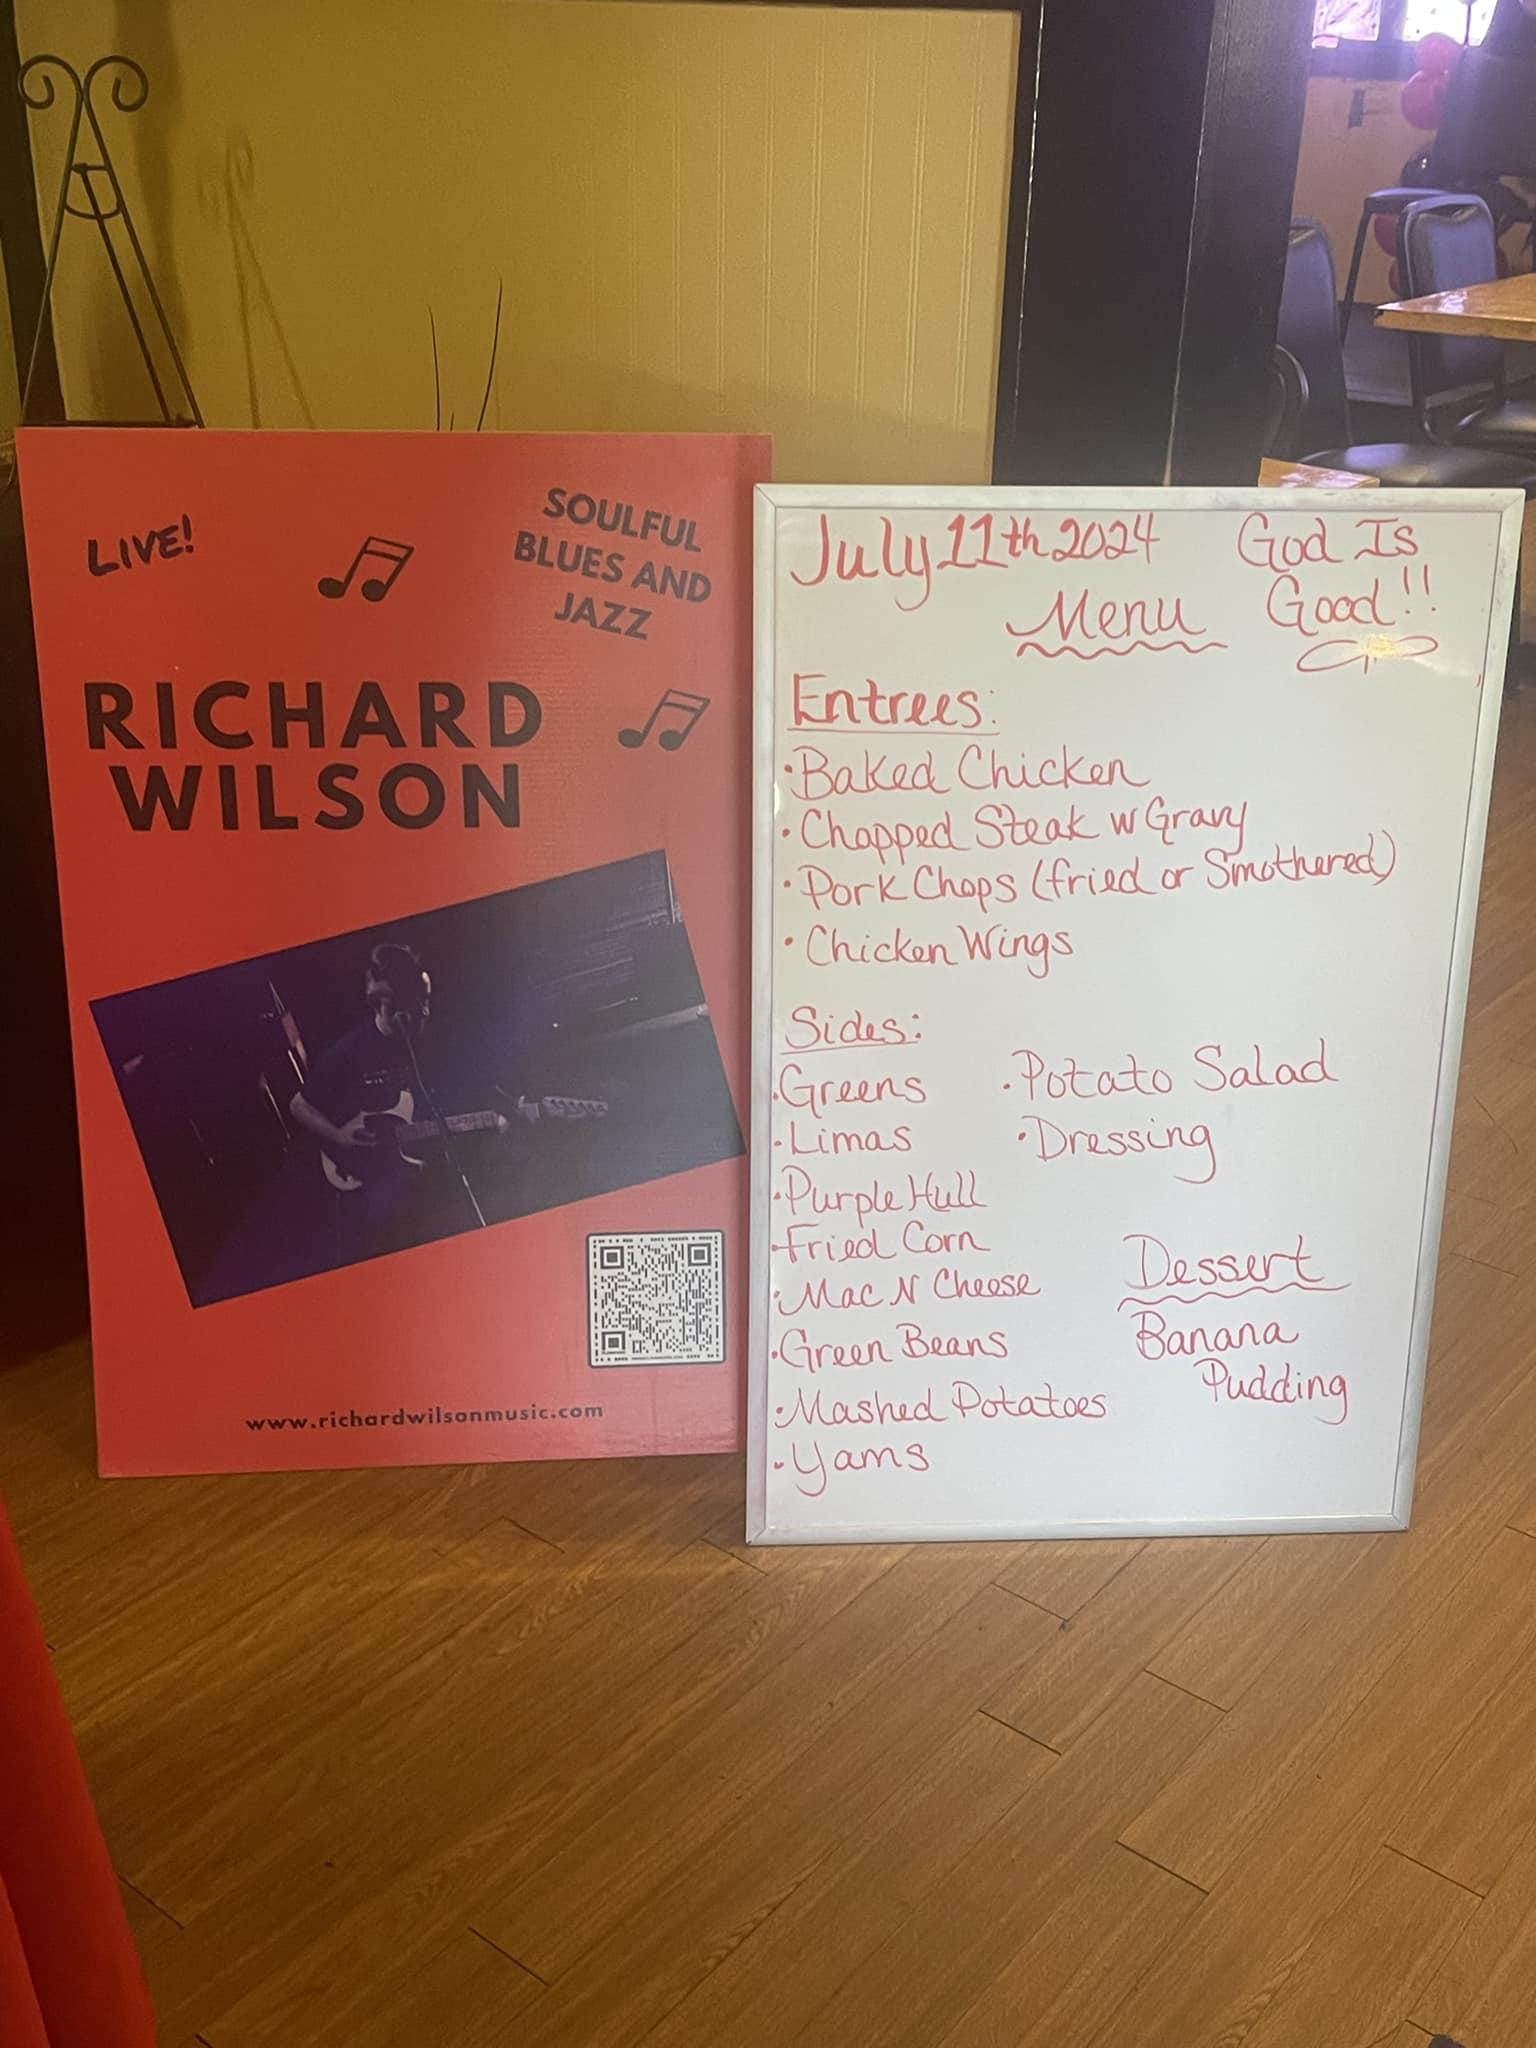 LIVE!
SOULFUL
BLUES AND
JAZZ
RICHARD
WILSON
www.richardwilsonmusic.com
July 11th 2024
God Is
Good!!
Menu
Entrees:
• Baked Chicken
• Chopped Steak w Gravy
• Pork Chops (fried or Smothered)
• Chicken Wings
Sides:
• Greens
• Limas
• Purple Hull
• Fried Corn
• Mac N Cheese
• Green Beans
• Mashed Potatoes
• Yams
• Potato Salad
• Dressing
Dessert
Banana
Pudding